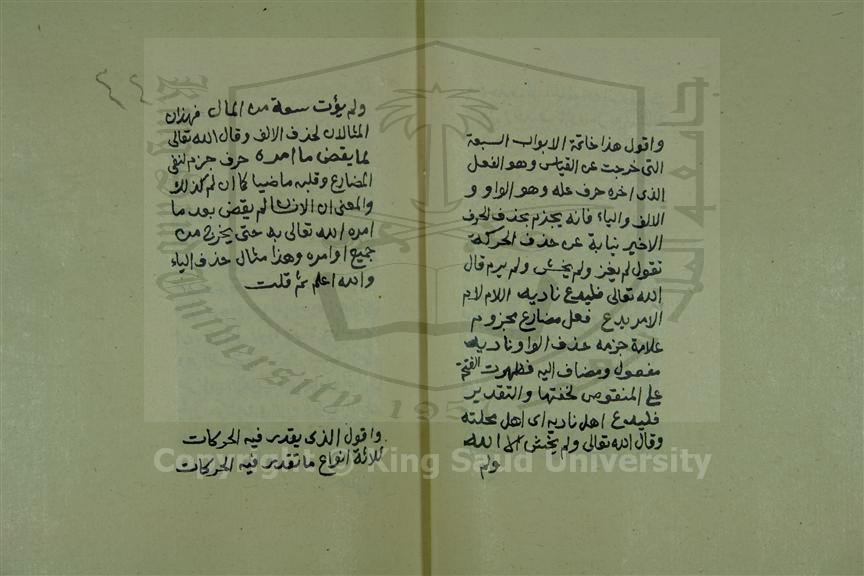 واقول هذا خاتمة الابواب السبعة
التى خرجت عن القياس وهو الفعل
الذى اخره حرف عله وهو الواو و
الالف والياء فانه يجزم بحذف الحرف
الاخير نيابة عن حذف الحركة
تقول لم يغز ولم يخش ولم يرم قال
الله تعالى فليدع ناديه اللام لام
الامر يدع فعل مضارع مجزوم
علامة جزمه حذف الواو ناديه
مفعول ومضاف اليه فظهرت الفتحة
على المنقوص لخفتها والتقدير
فليدع اهل ناديه اى اهل محلته
وقال الله تعالى ولم يخش الا الله
ولم
٤٤
ولم يؤت سعة من المال فهذان
المثالان لحذف الالف وقال الله تعالى
لما يقض ما امره حرف جزم لنفى
المضارع وقلبه ماضيا كما ان لم كذلك
والمعنى ان الانسان لم يقض بعد ما
امره الله تعالى به حتى يخرج من
جميع اوامره وهذا مثال حذف الياء
والله اعلم ثم قلت
واقول الذى يقدر فيه الحركات
ثلاثة انواع ما تقدر فيه الحركات
Copyright © King Saud University